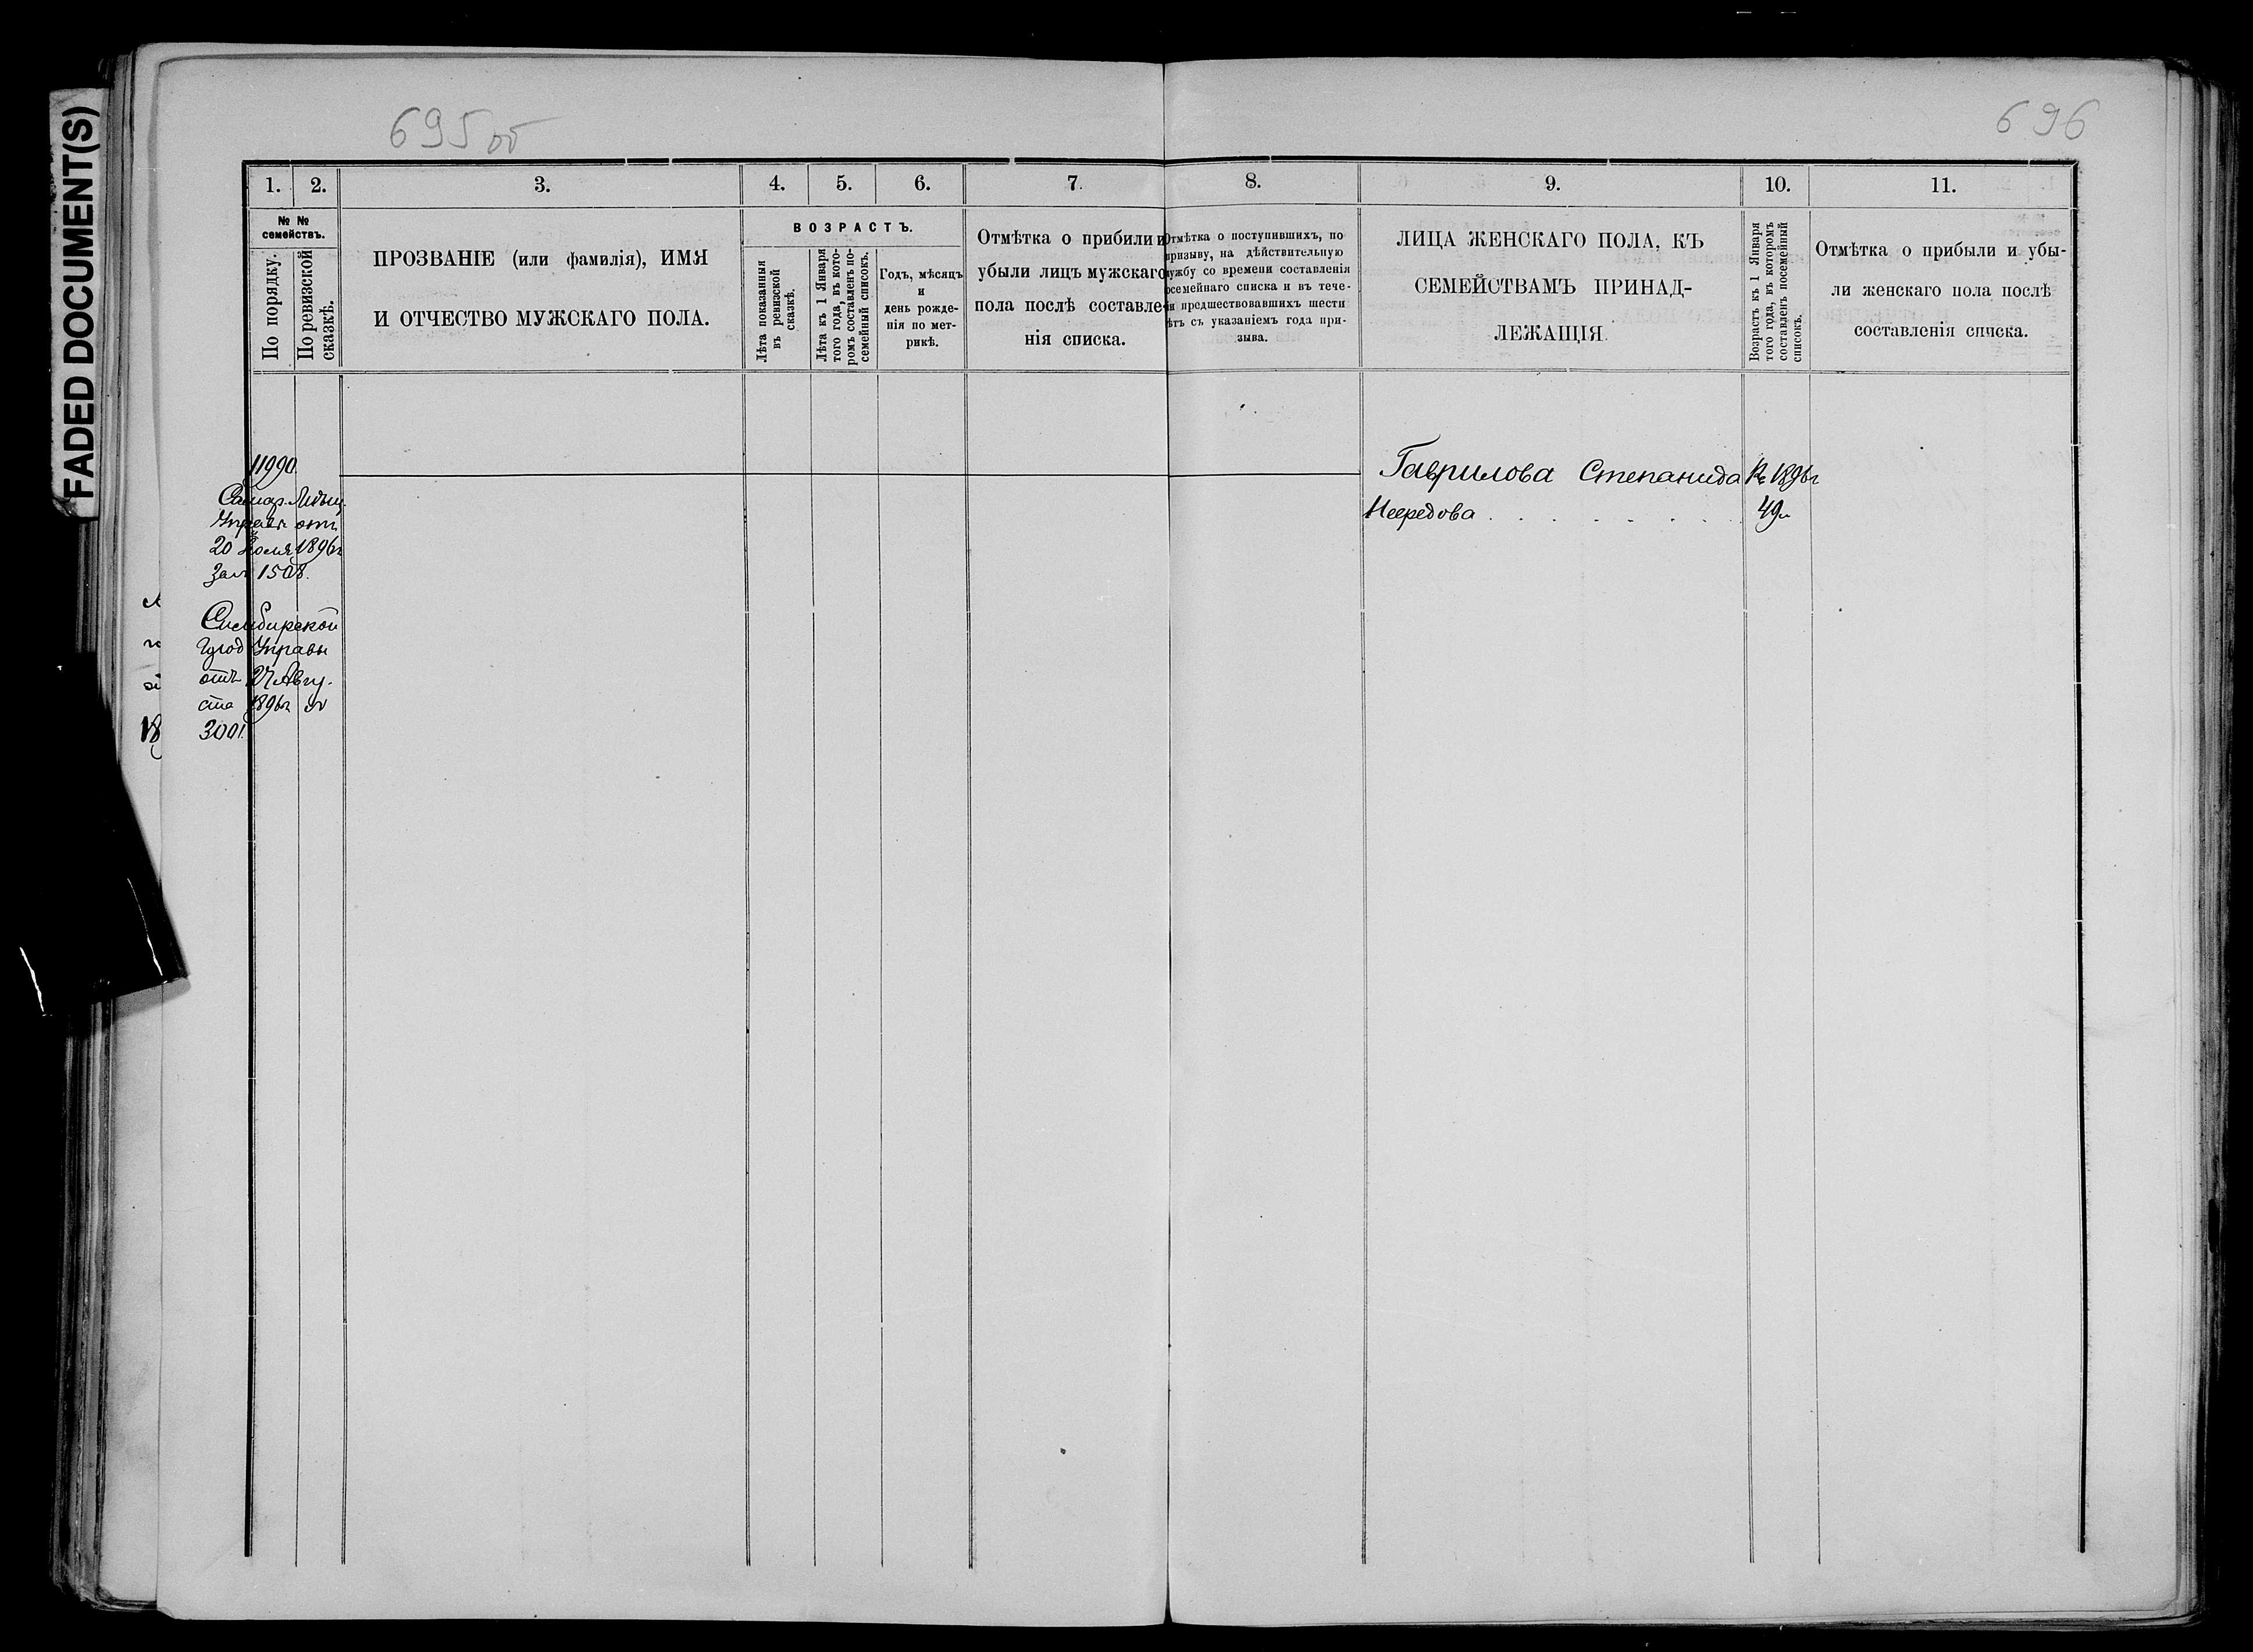 FADED DOCUMENT(S)
695 об
696
1.
2.
3.
4.
5.
6.
7.
8.
9.
10.
11.
№ №
семействъ.
По порядку.
По ревизской
сказкѣ.
ПРОЗВАНІЕ (или фамилія), ИМЯ
И ОТЧЕСТВО МУЖСКАГО ПОЛА.
ВОЗРАСТЪ.
Лѣта показанныя
въ ревизской
сказкѣ.
Лѣта къ 1 Января
того года, въ кото-
ромъ составленъ по-
семейный списокъ.
Годъ, мѣсяцъ
и
день рожде-
нія по мет-
рикѣ.
Отмѣтка о прибыли и
убыли лицъ мужскаго
пола послѣ составле-
нія списка.
Отмѣтка о поступившихъ, по
призыву, на дѣйствительную
ужбу со времени составленія
осемейнаго списка и въ тече-
и предшествовавшихъ шести
ѣтъ съ указаніемъ года при-
зыва.
ЛИЦА ЖЕНСКАГО ПОЛА, КЪ
СЕМЕЙСТВАМЪ ПРИНАД-
ЛЕЖАЩІЯ.
Возрастъ къ 1 Января
того года, въ которомъ
составленъ посемейный
списокъ.
Отмѣтка о прибыли и убы-
ли женскаго пола послѣ
составленія списка.
11990.
Самар.
Управы отъ
20 Іюля 1896г
за № 1508.
Симбирской
Город Управы
отъ 27 Авгу-
ста 1896г №
3001.
Гаврилова Степанида
Къ 1896г
49л
18